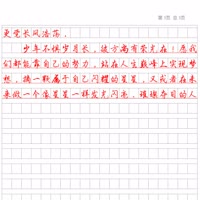 第1页 共1页
更觉长风浩荡。
少年不惧岁月长，彼方尚有荣光在！愿我
们都能靠自己的努力，站在人生巅峰上实现梦
想，摘一颗属于自己闪耀的星星，又或者在未
来做一个像星星一样发光闪亮，璀璨夺目的人